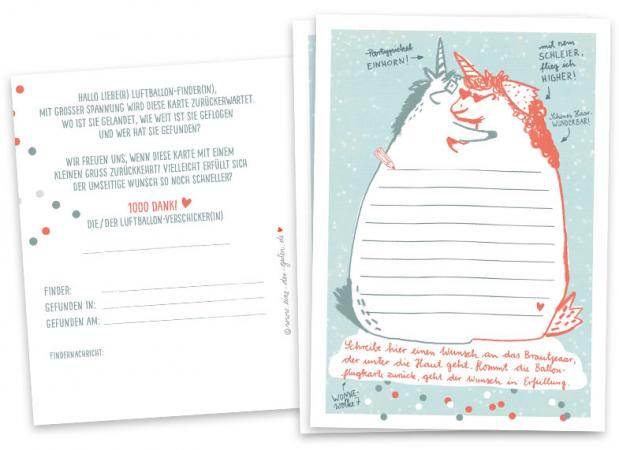 HALLO LIEBE(R) LUFTBALLON-FINDER(IN),
MIT GROSSER SPANNUNG WIRD DIESE KARTE ZURÜCKERWARTET.
WO IST SIE GELANDET, WIE WEIT IST SIE GEFLOGEN
UND WER HAT SIE GEFUNDEN?
WIR FREUEN UNS, WENN DIESE KARTE MIT EINEM
KLEINEN GRUSS ZURÜCKKEHRT! VIELLEICHT ERFÜLLT SICH
DER UMSEITIGE WUNSCH SO NOCH SCHNELLER?
1000 DANK!
DIE/DER LUFTBALLON-VERSCHICKER(IN)
FINDER:
GEFUNDEN IN:
GEFUNDEN AM:
FINDERNACHRICHT:
© www.eine-der-guten.de
Partypickel
EINHORN!
mit nem
SCHLEIER,
flieg ich
HIGHER!
Schönes Haar.
WUNDERBAR!
Schreibe hier einen Wunsch an das Brautpaar,
der unter die Haut geht. Kommt die Ballon-
flugkarte zurück, geht der Wunsch in Erfüllung.
WONNE-
wolke 7